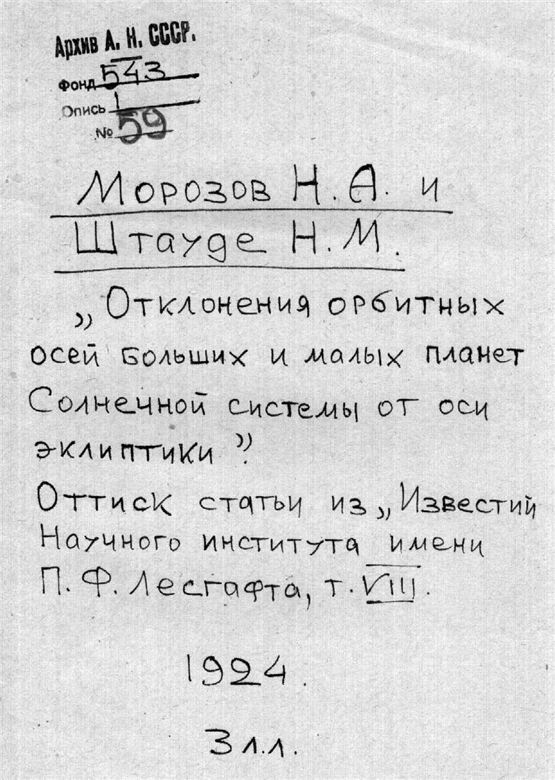 Архив А. Н. СССР.
Фонд 543
Опись 1
№ 59
Морозов Н.А. и
Штауде Н.М.
„Отклонения орбитных
осей больших и малых планет
Солнечной системы от оси
эклиптики”.
Оттиск статьи из „Известий
Научного института имени
П.Ф. Лесгафта, т. VIII.
1924.
3 л.л.